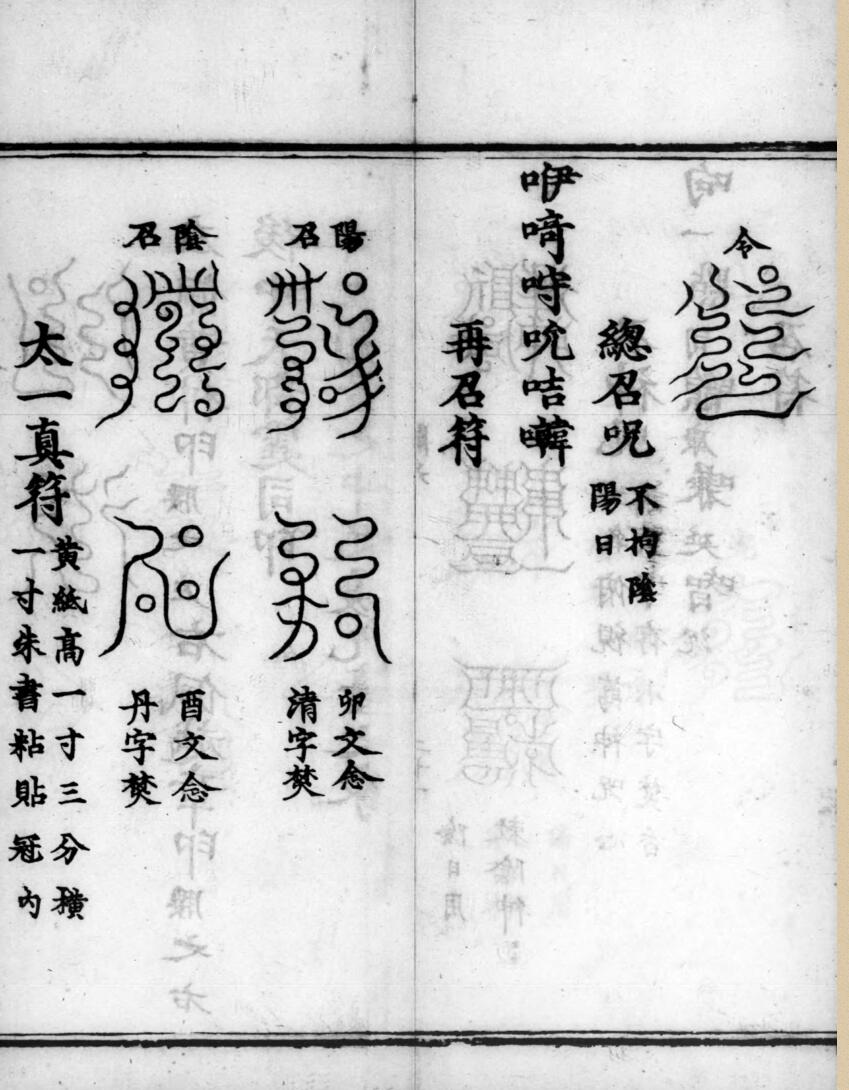 令
總召呪 不拘陰
陽日
咿㗇㖡吮咭㘚
再召符
陽召
卯文念
清字焚
陰召
酉文念
丹字焚
太一真符 黃紙高一寸三分橫
一寸朱書粘貼冠內